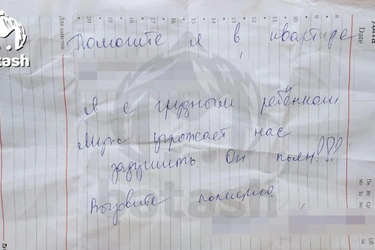 otash
Date
Помогите я в квартире
Я с грудным ребёнком
Муж угрожает нас
задушить Он пьян!!!
botash
Вызовите полицию.